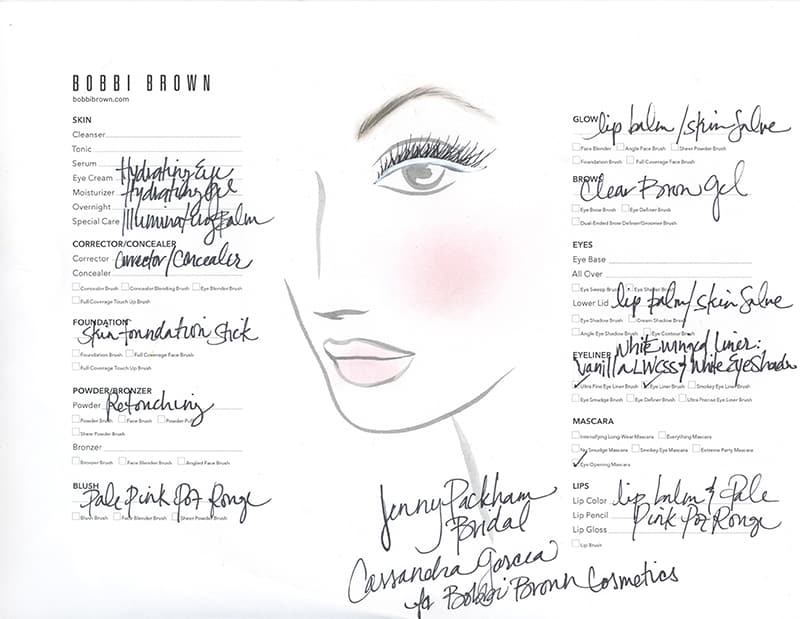 BOBBI BROWN
bobbibrown.com
SKIN
Cleanser
Tonic
Serum
Eye Cream Hydrating Eye
Moisturizer Hydrating Gel
Overnight
Special Care Illuminating Balm
CORRECTOR/CONCEALER
Corrector Corrector/Concealer
Concealer
Concealer Brush Concealer Blending Brush Eye Blender Brush
Full Coverage Touch Up Brush
FOUNDATION
Skin Foundation Stick
Foundation Brush Full Coverage Face Brush
Full Coverage Touch Up Brush
POWDER/BRONZER
Powder Retouching
Powder Brush Face Brush Powder Puff
Sheer Powder Brush
Bronzer
Bronzer Brush Face Blender Brush Angled Face Brush
BLUSH
Pale Pink Pot Rouge
Blush Brush Face Blender Brush Sheer Powder Brush
GLOW lip balm/skin salve
Face Blender Angle Face Brush Sheer Powder Brush
Foundation Brush Full Coverage Face Brush
BROWS
Clear Brow Gel
Eye Brow Brush Eye Definer Brush
Dual-Ended Brow Definer/Groomer Brush
EYES
Eye Base
All Over
Eye Sweep Brush Eye Shader Brush
Lower Lid lip balm/skin salve
Eye Shadow Brush Cream Shadow Brush
Angle Eye Shadow Brush Eye Contour Brush
White winged liner:
EYELINER Vanilla LWCSS & White Eye Shadow
Ultra Fine Eye Liner Brush Eye Liner Brush Smokey Eye Liner Brush
Eye Smudge Brush Eye Definer Brush Ultra Precise Eye Liner Brush
MASCARA
Intensifying Long-Wear Mascara Everything Mascara
No Smudge Mascara Smokey Eye Mascara Extreme Party Mascara
Eye Opening Mascara
LIPS
Lip Color lip balm & Pale
Lip Pencil Pink Pot Rouge
Lip Gloss
Lip Brush
Jenny Packham
Bridal
Cassandra Garcia
for Bobbi Brown Cosmetics